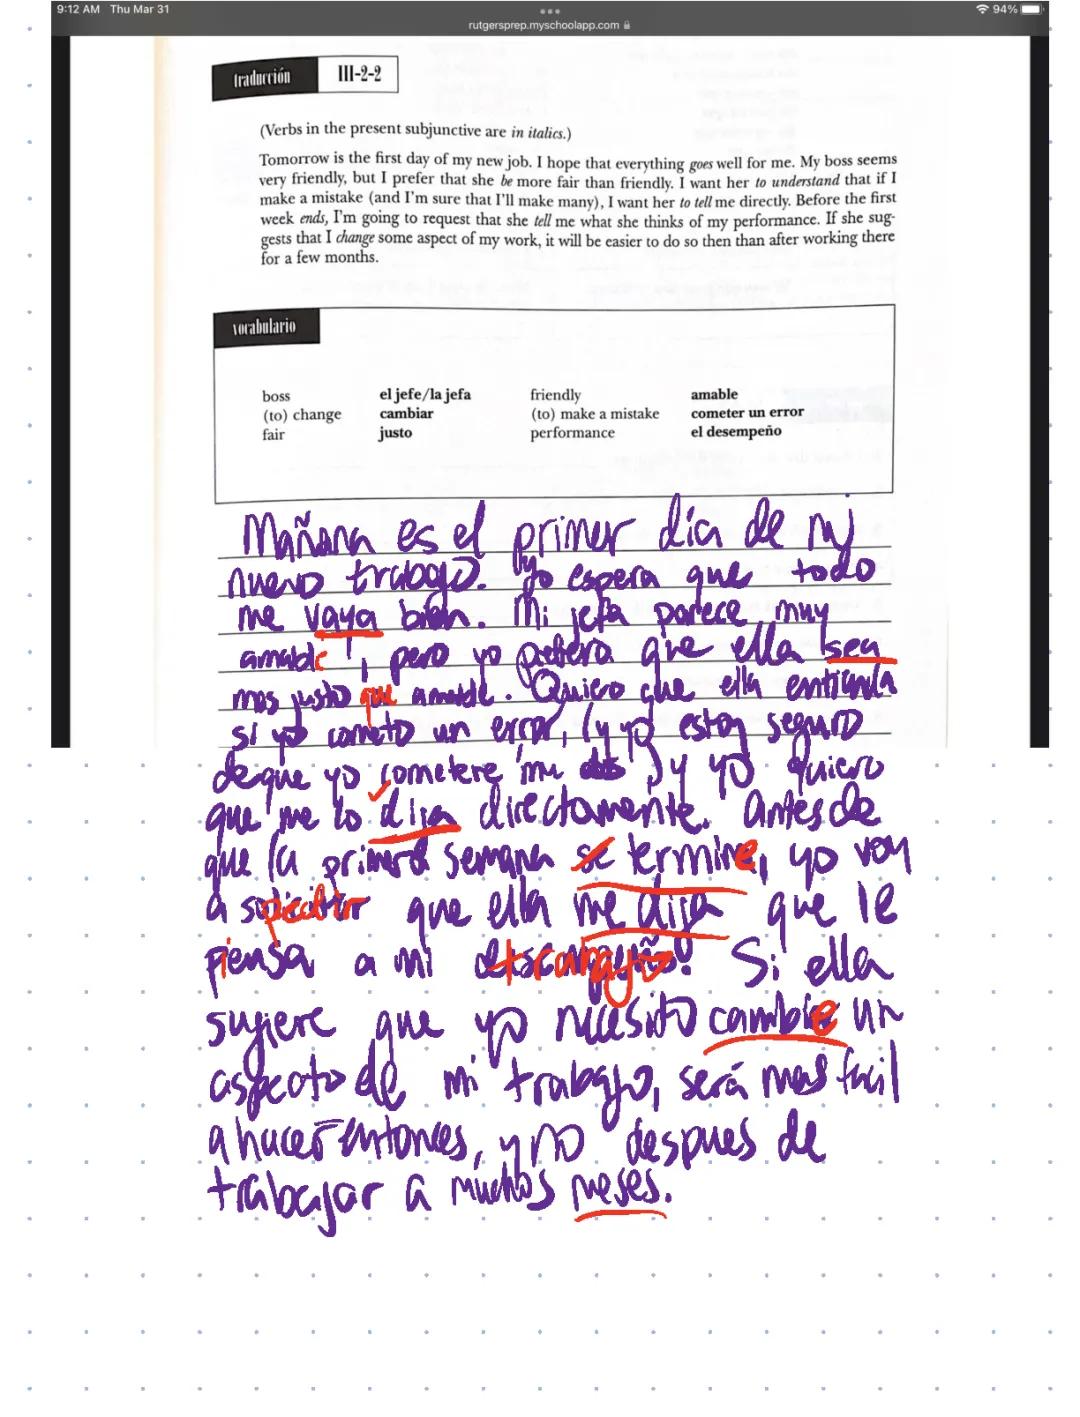 9:12 AM Thu Mar 31
94%
rutgersprep.myschoolapp.com
traducción III-2-2
(Verbs in the present subjunctive are in italics.)
Tomorrow is the first day of my new job. I hope that everything goes well for me. My boss seems
very friendly, but I prefer that she be more fair than friendly. I want her to understand that if I
make a mistake (and I'm sure that I'll make many), I want her to tell me directly. Before the first
week ends, I'm going to request that she tell me what she thinks of my performance. If she sug-
gests that I change some aspect of my work, it will be easier to do so then than after working there
for a few months.
vocabulario
boss el jefe/la jefa friendly amable
(to) change cambiar (to) make a mistake cometer un error
fair justo performance el desempeño
Mañana es el primer día de mi
nuevo trabajo. Yo espera que todo
me vaya bien. Mi jefa parece muy
amable, pero yo prefiero que ella sea
mas justo que amable. Quiero que ella entienda
si yo cometo un error, (y yo estoy seguro
de que yo cometere ) y yo quiero
que me lo diga directamente. Antes de
que la primera semana se termine, yo voy
a pedir que ella me diga que le
piensa a mi trabajo. Si ella
sugiere que yo necesito cambie un
aspecto de mi trabajo, será mas facil
a hacer entonces, y no despues de
trabajar a muchos meses.